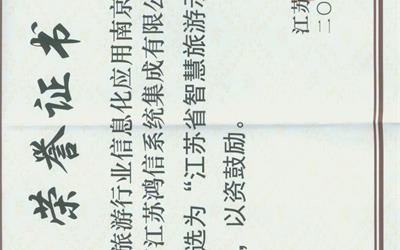 荣誉证书
旅游行业信息化应用南京
江苏鸿信系统集成有限公
选为“江苏省智慧旅游示
，以资鼓励。
江苏
二〇